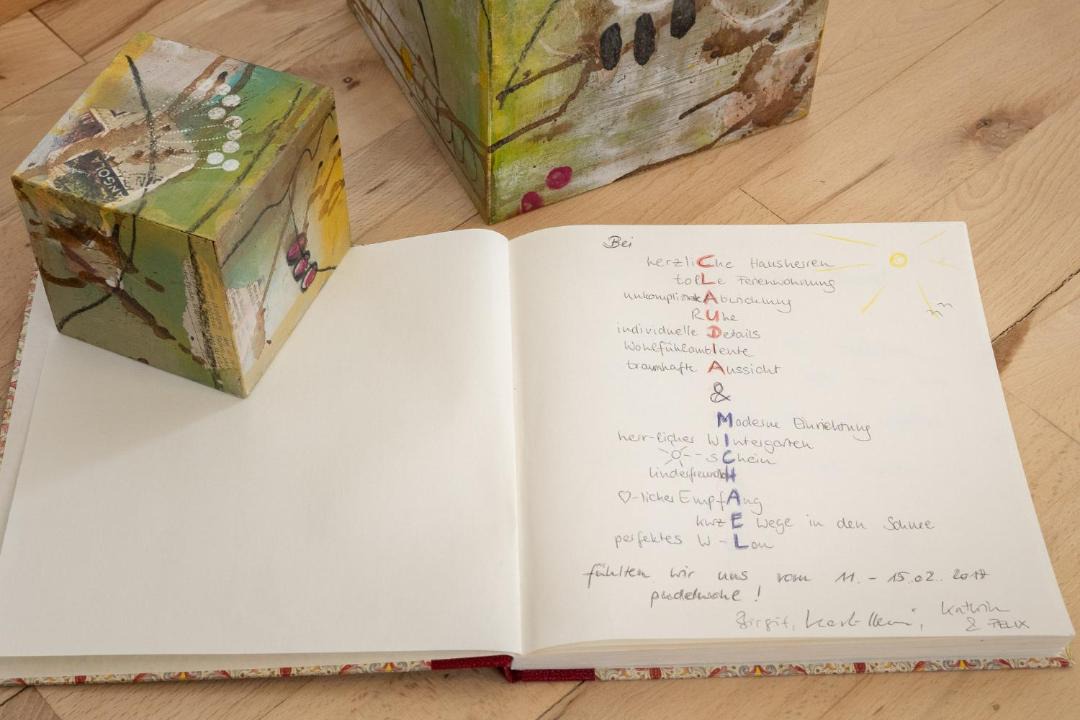 ANGOL
Bei
herzliChe Hausherren
tolLe Ferienwohnung
unkomplizierte Abwicklung
RUhe
individuelle Details
WohlfühlambIente
traumhafte Aussicht
&
Moderne Einrichtung
herr-licher WIntergarten
-sChein
kinderfreundlicH
♡-licher EmpfAng
kurzE Wege in den Schnee
perfektes W-Lan
fühlten wir uns vom 11. - 15.02. 2017
pudelwohl !
Birgit, Karl-Heinz, Kathrin
& FELIX